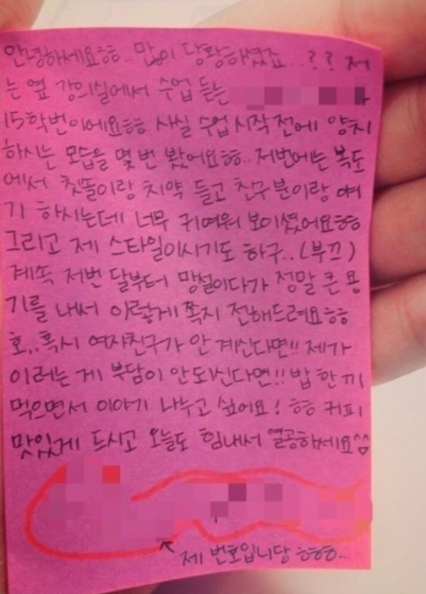 안녕하세요ㅎㅎ.. 많이 당황하셨죠..?? 저
는 옆 강의실에서 수업 듣는
15학번이에요ㅎㅎ 사실 수업 시작 전에 양치
하시는 모습을 몇 번 봤어요ㅎㅎ.. 저번에는 복도
에서 칫솔이랑 치약 들고 친구분이랑 얘
기 하시는데 너무 귀여워 보이셨어요ㅎㅎ
그리고 제 스타일이시기도 하구..(부끄)
계속 저번 달부터 망설이다가 정말 큰 용
기를 내서 이렇게 쪽지 전해드려요ㅎㅎ
호..혹시 여자친구가 안 계신다면!! 제가
이러는 게 부담이 안되신다면!! 밥 한 끼
먹으면서 이야기 나누고 싶어요! ㅎㅎ 커피
맛있게 드시고 오늘도 힘내서 열공하세요^^
제 번호입니당 ㅎㅎㅎ..